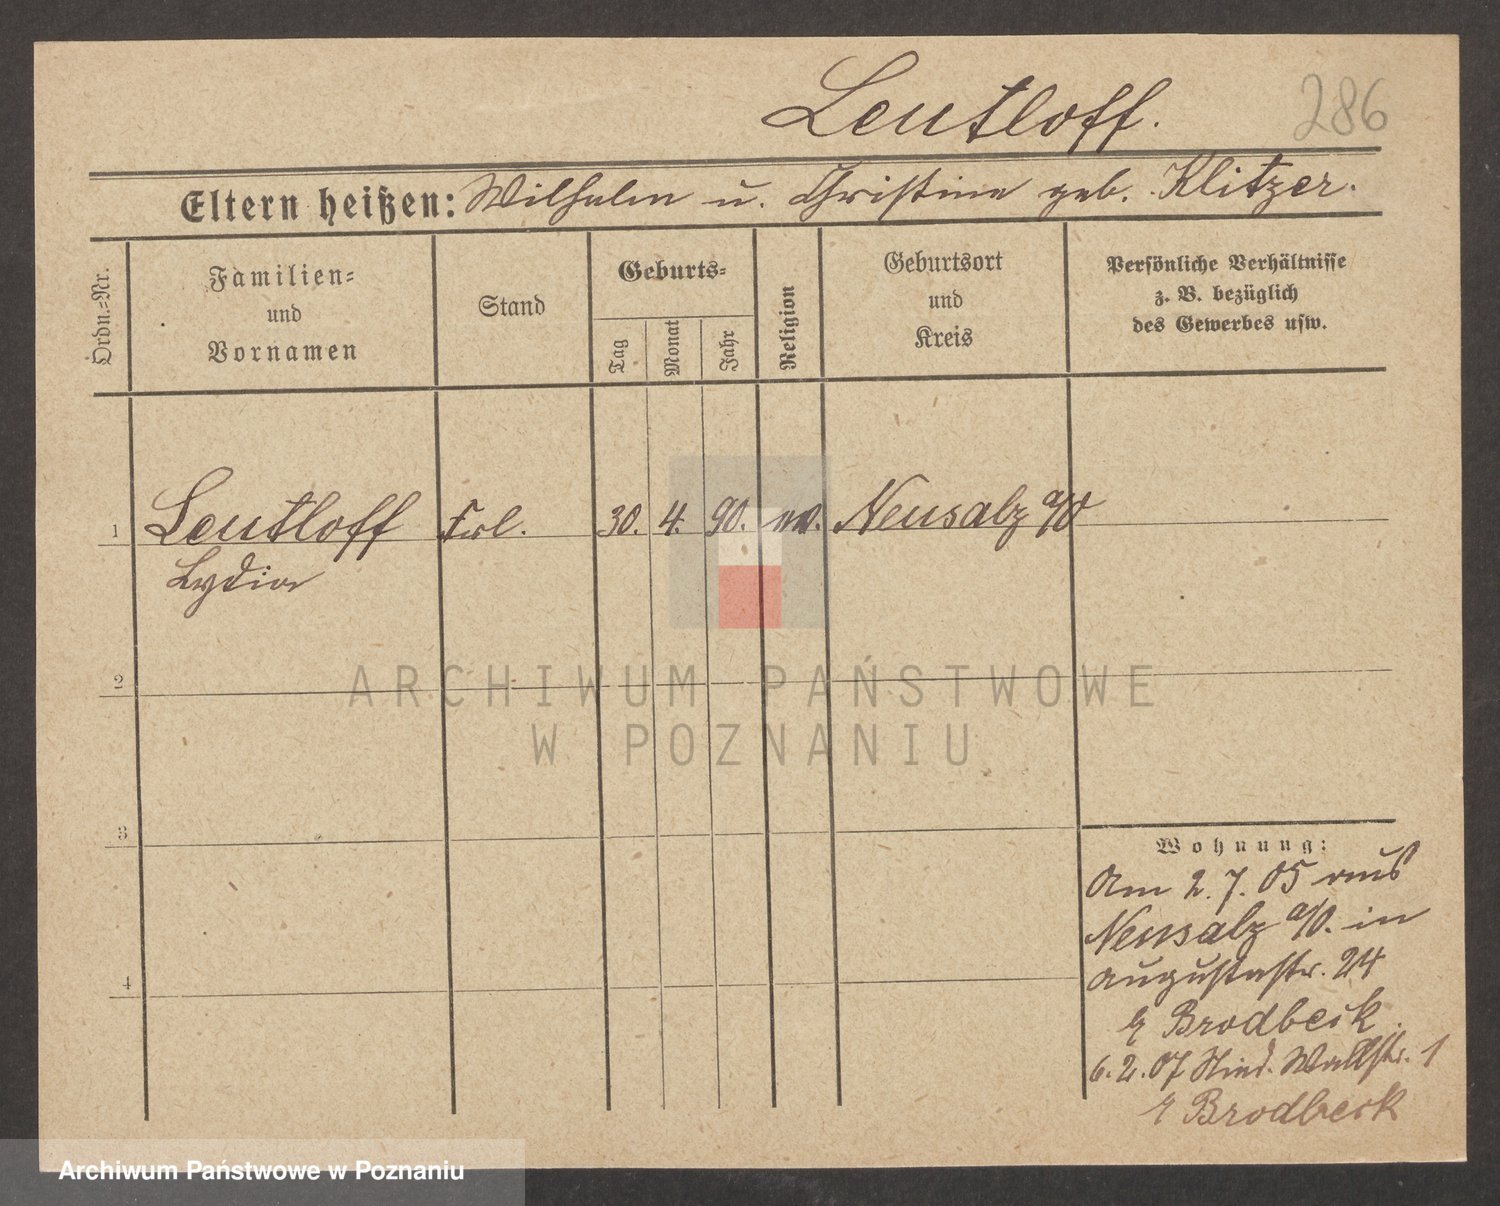 Leutloff.
286
Eltern heißen: Wilhelm u. Christine geb. Klitzer.
Ordn.-Nr.
Familien-
und
Vornamen
Stand
Geburts-
Tag
Monat
Jahr
Religion
Geburtsort
und
Kreis
Persönliche Verhältnisse
z. B. bezüglich
des Gewerbes usw.
1 Leutloff Frl. 30. 4. 90. ev. Neusalz a/O
Lydia
2
ARCHIWUM PAŃSTWOWE
W POZNANIU
3
Wohnung:
Am 2. 7. 05 aus
Neusalz a/O. in
Augustastr. 24
4
Brodbeck.
6. 2. 07 Nied. Wallstr. 1
Brodbeck
Archiwum Państwowe w Poznaniu